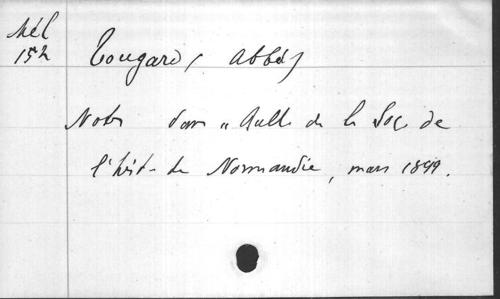 Mél
152
Tougard (Abbé)
Note dans "Bull. de la Soc. de
l'hist. de Normandie, mars 1899.